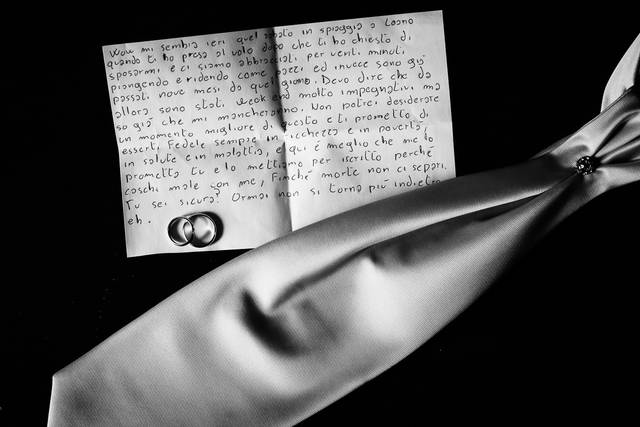 Wow mi sembra ieri quel sabato in spiaggia a Loano
quando ti ho presa al volo dopo che ti ho chiesto di
sposarmi e ci siamo abbracciati per venti minuti
piangendo e ridendo come pazzi ed invece sono già
passati nove mesi da quel giorno. Devo dire che da
allora sono stati week end molto impegnativi ma
so già che mi mancheranno. Non potrei desiderare
un momento migliore di questo e ti prometto di
esserti Fedele sempre in ricchezza e in povertà,
in salute e in malattia, e qui é meglio che me lo
prometta tu e lo mettiamo per iscritto perché
caschi male con me, Finché morte non ci separi.
Tu sei sicura? Ormai non si torna più indietro
eh.